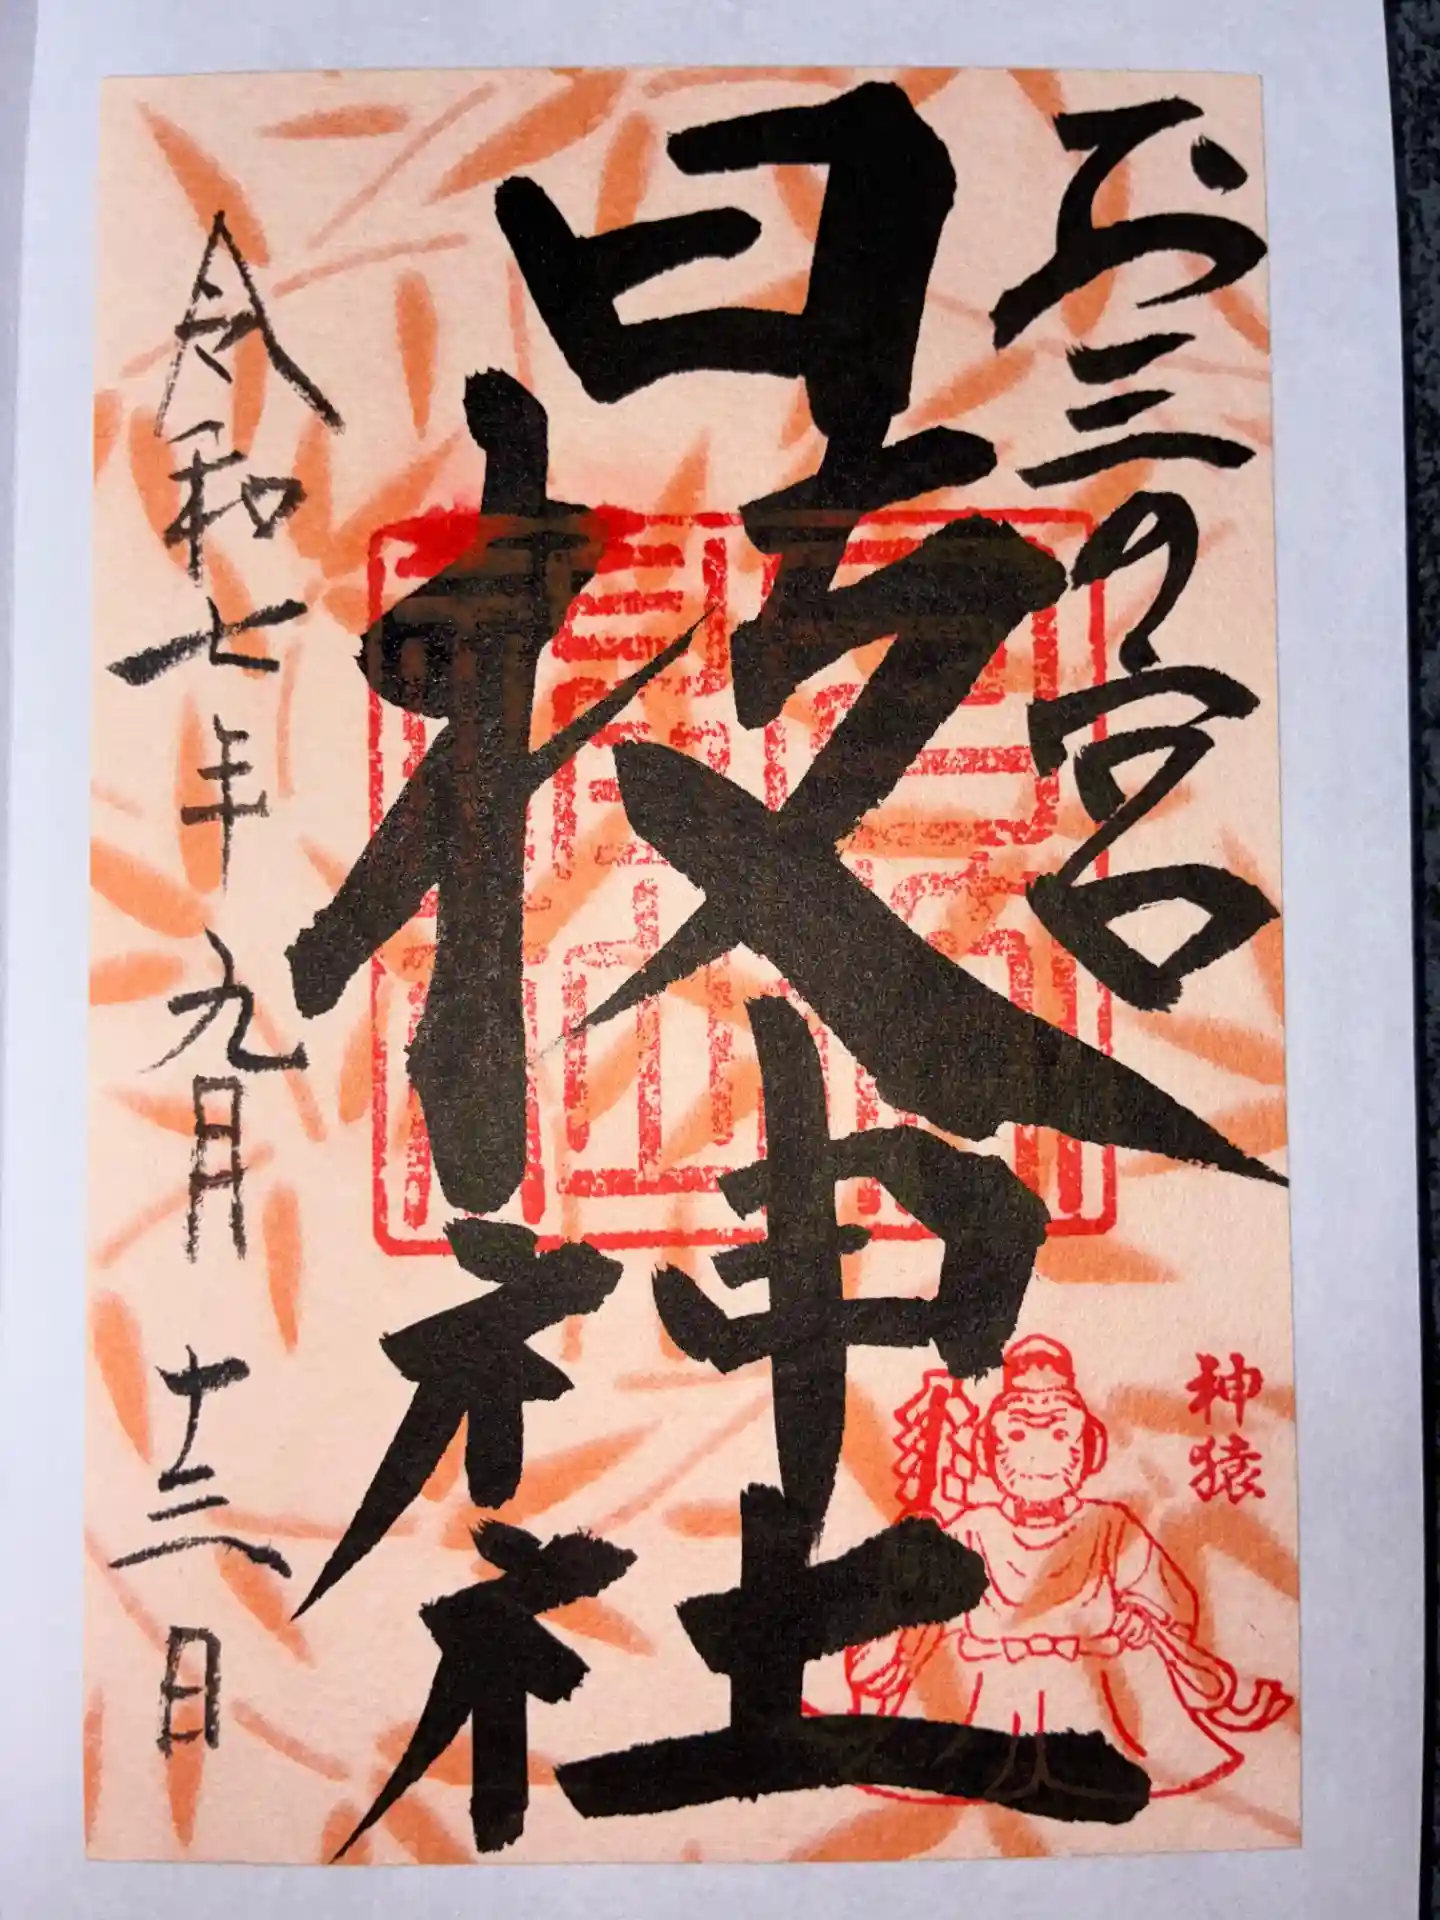 お三の宮
日枝神社
神猿
令和七年九月十三日